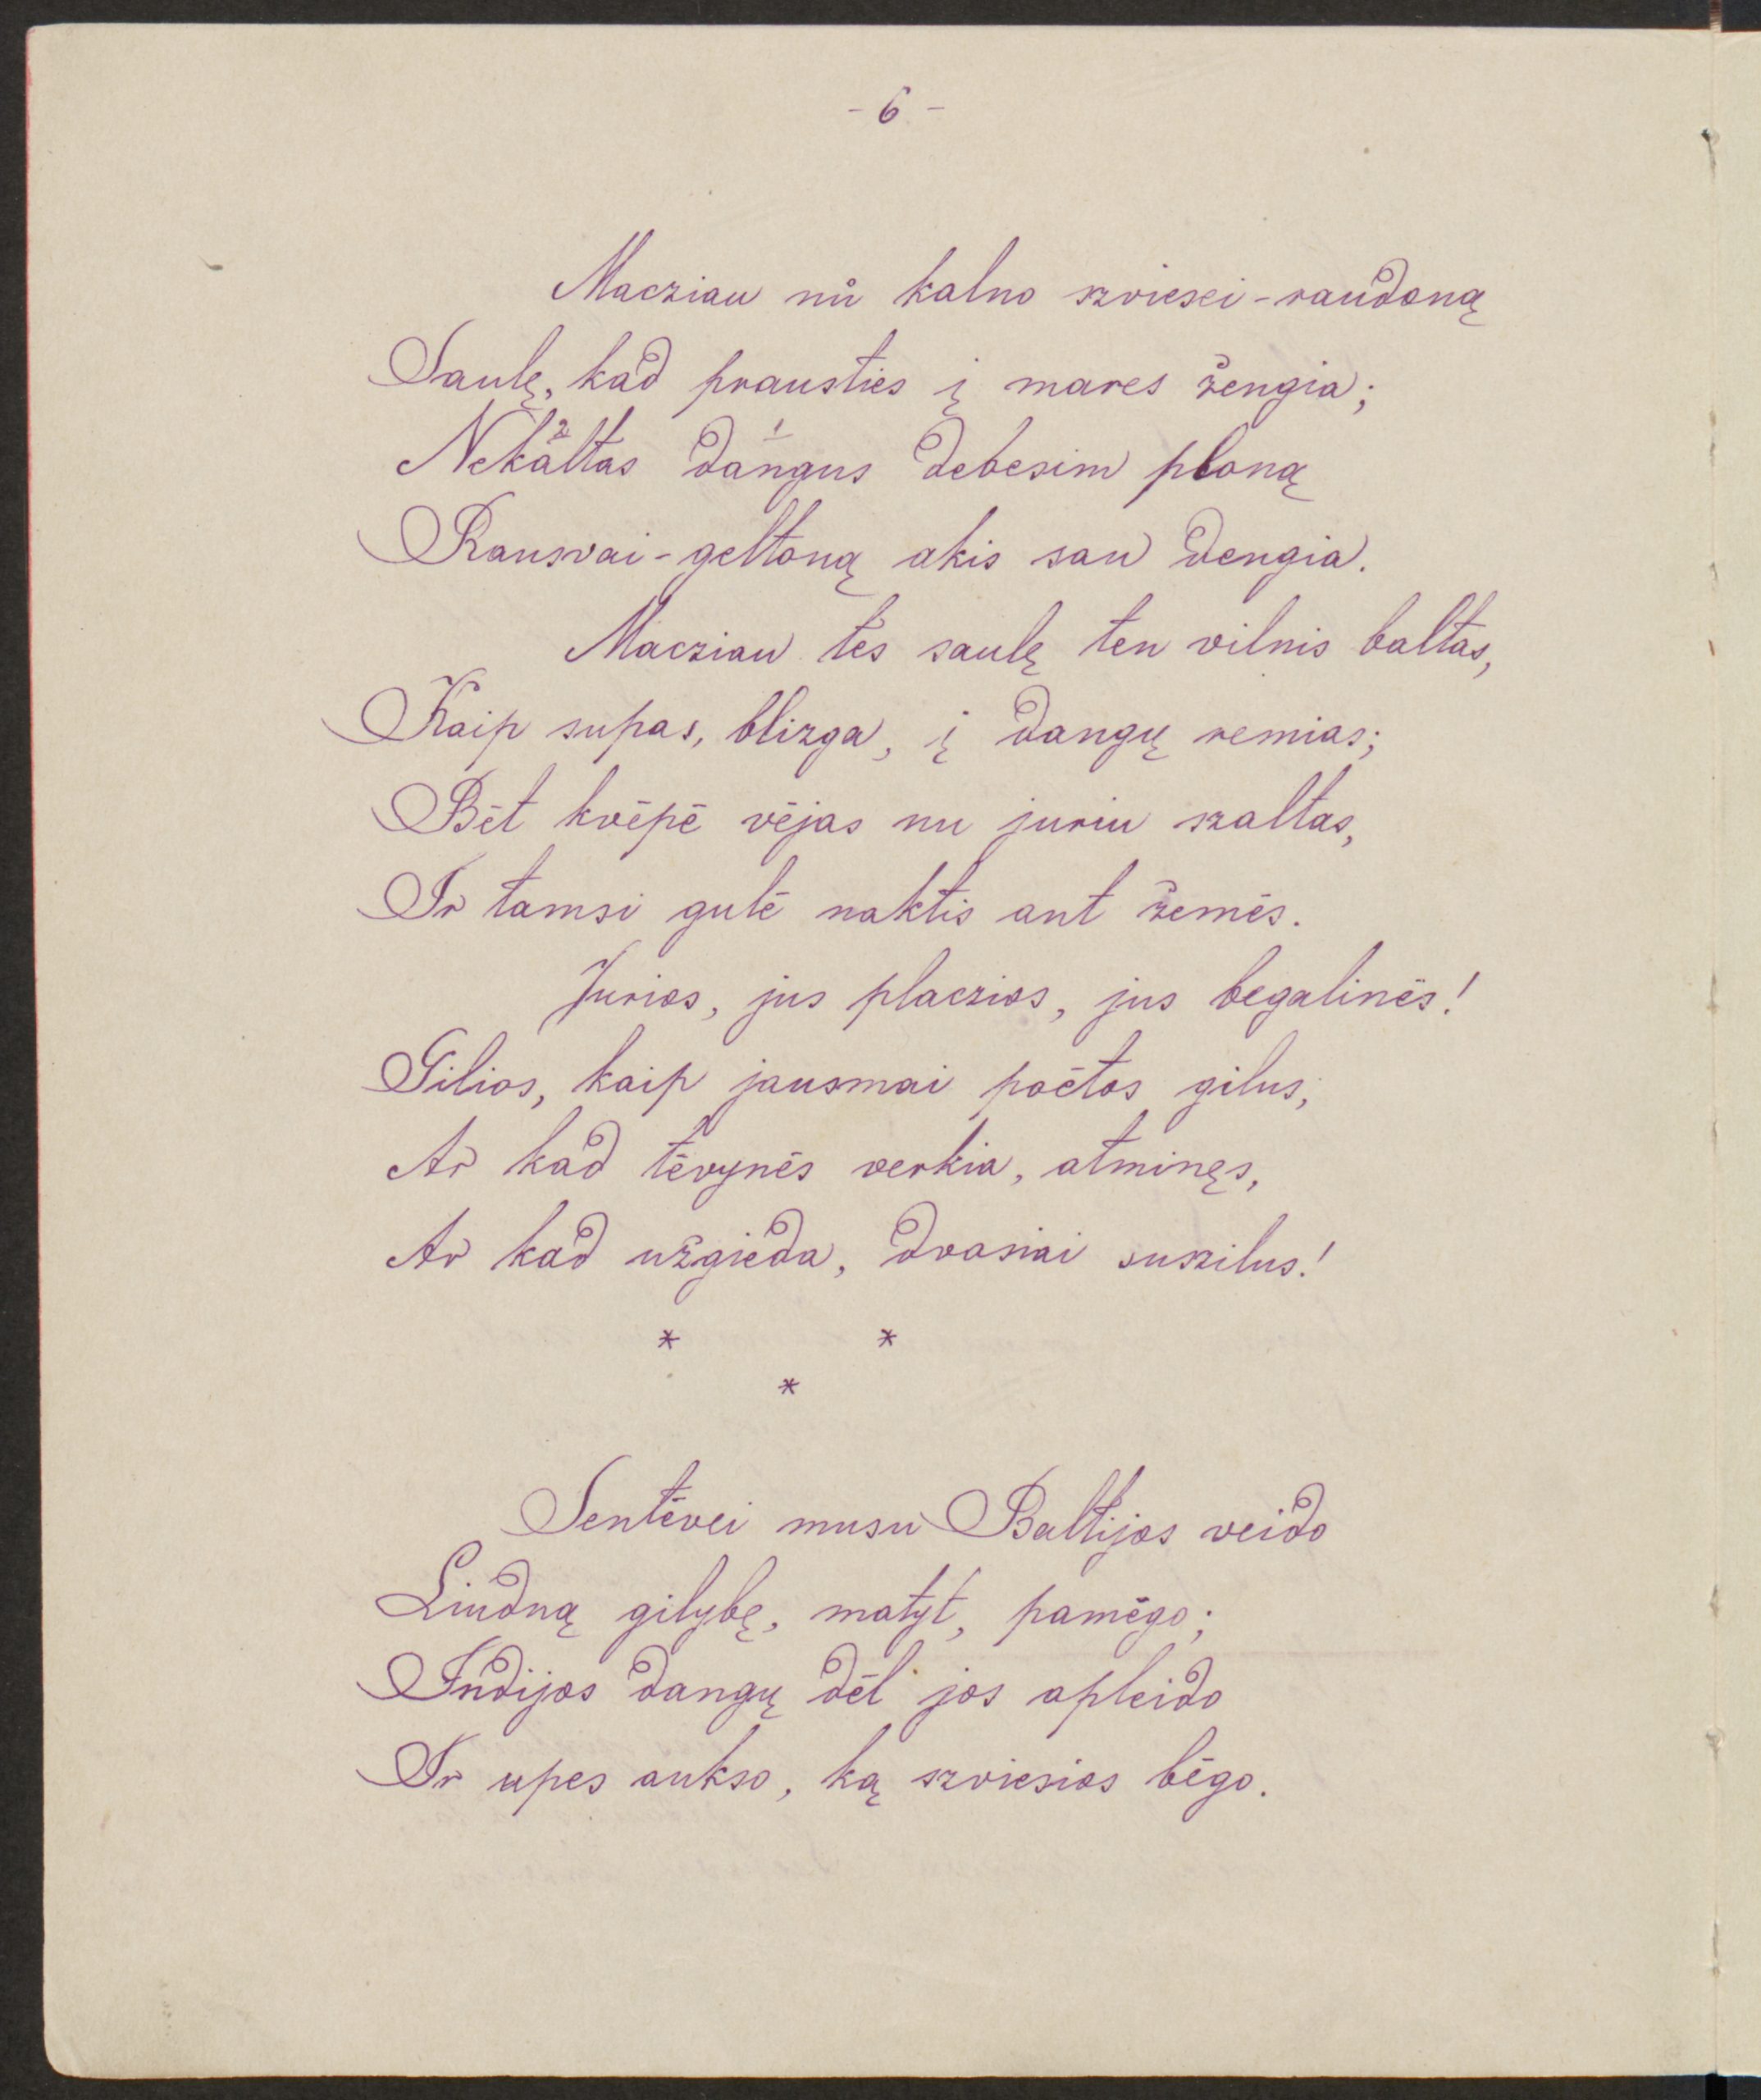 - 6 -
Macziau nů kalno szviesei-raudoną
Saulę, kad prausties į mares žengia;
Nekaltas² dangus¹ debesim ploną
Rausvai-geltoną akis sau dengia.
Macziau tės saulę ten vilnis baltas,
Kaip supas, blizga, į dangų remias;
Bėt kvėpė vėjas nu juriu szaltas,
Ir tamsi gulė naktis ant žemės.
Jurios, jus placzios, jus begalinės!
Gilios, kaip jausmai poėtos gilus,
Ar kad tėvynės verkia, atminęs,
Ar kad užgieda, dvasiai suszilus!
* *
*
Sentėvei musu Baltijos veido
Liudną gilybę, matyt, pamėgo;
Indijos dangų dėl jos apleido
Ir upes aukso, ką szviesios bėgo.